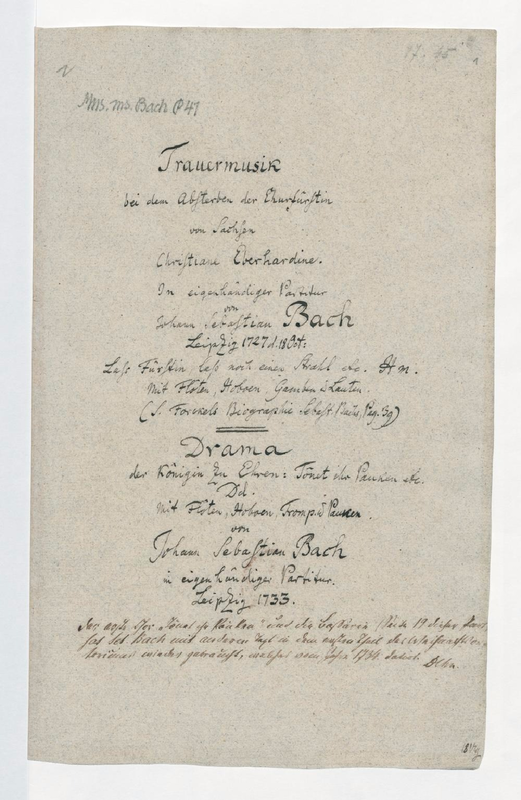 Mus. ms. Bach P 41
Trauermusik
bei dem Absterben der Churfürstin
von Sachsen
Christiane Eberhardine.
In eigenhändiger Partitur
von
Johann Sebastian Bach
Leipzig 1727 d. 18 Oct:
Lass Fürstin lass noch einen Strahl etc. H m.
Mit Flöten, Hoboen, Gamben u Lauten.
(S. Forckels Biographie Sebast. Bachs, Pag. 39)
Drama
der Königin zu Ehren: Tönet ihr Pauken etc.
Dd.
Mit Flöten, Hoboen, Tromp. u Pauken.
von
Johann Sebastian Bach
in eigenhändiger Partitur.
Leipzig 1733.
Der erste Chor
hat Seb. Bach mit anderem Text in dem ersten Theil des Weihnachts-
toriums wieder gebraucht, welches vom Jahre 1734 datirt.
Dehn.